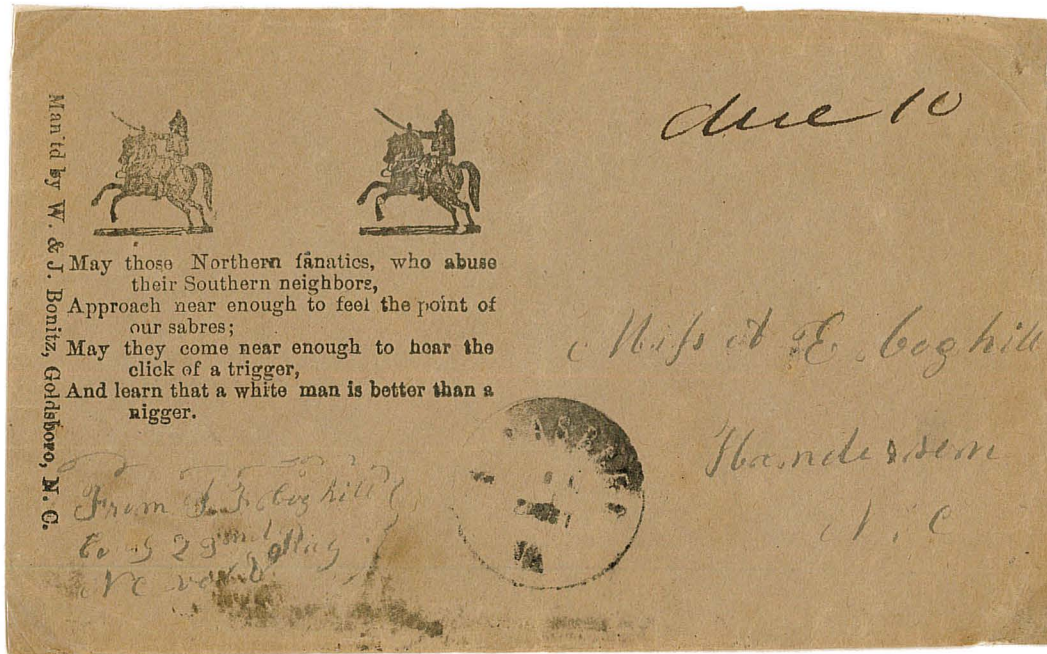 due 10
Man'td by W. & J. Bonitz, Goldsboro, N. C.
May those Northern fanatics, who abuse
their Southern neighbors,
Approach near enough to feel the point of
our sabres;
May they come near enough to hear the
click of a trigger,
And learn that a white man is better than a
nigger.
Miss A E Coghill
Handerson
N. C
From J. F. Coghill
Co G 23 Reg
NC